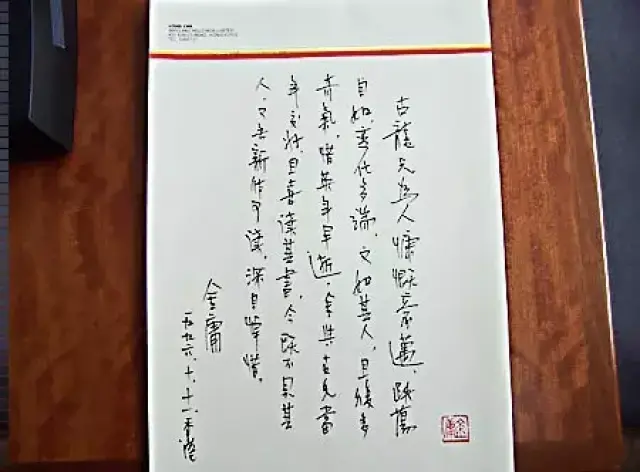 古龍兄為人慷慨豪邁、跌蕩
自如変化多端、文如其人、且復多
奇氣。惜英年早逝,余與古兄當
年交好,且喜讀其書,今既不見其
人、又無新作可讀,深自悼惜。
金庸
一九九六、十、十一 香港